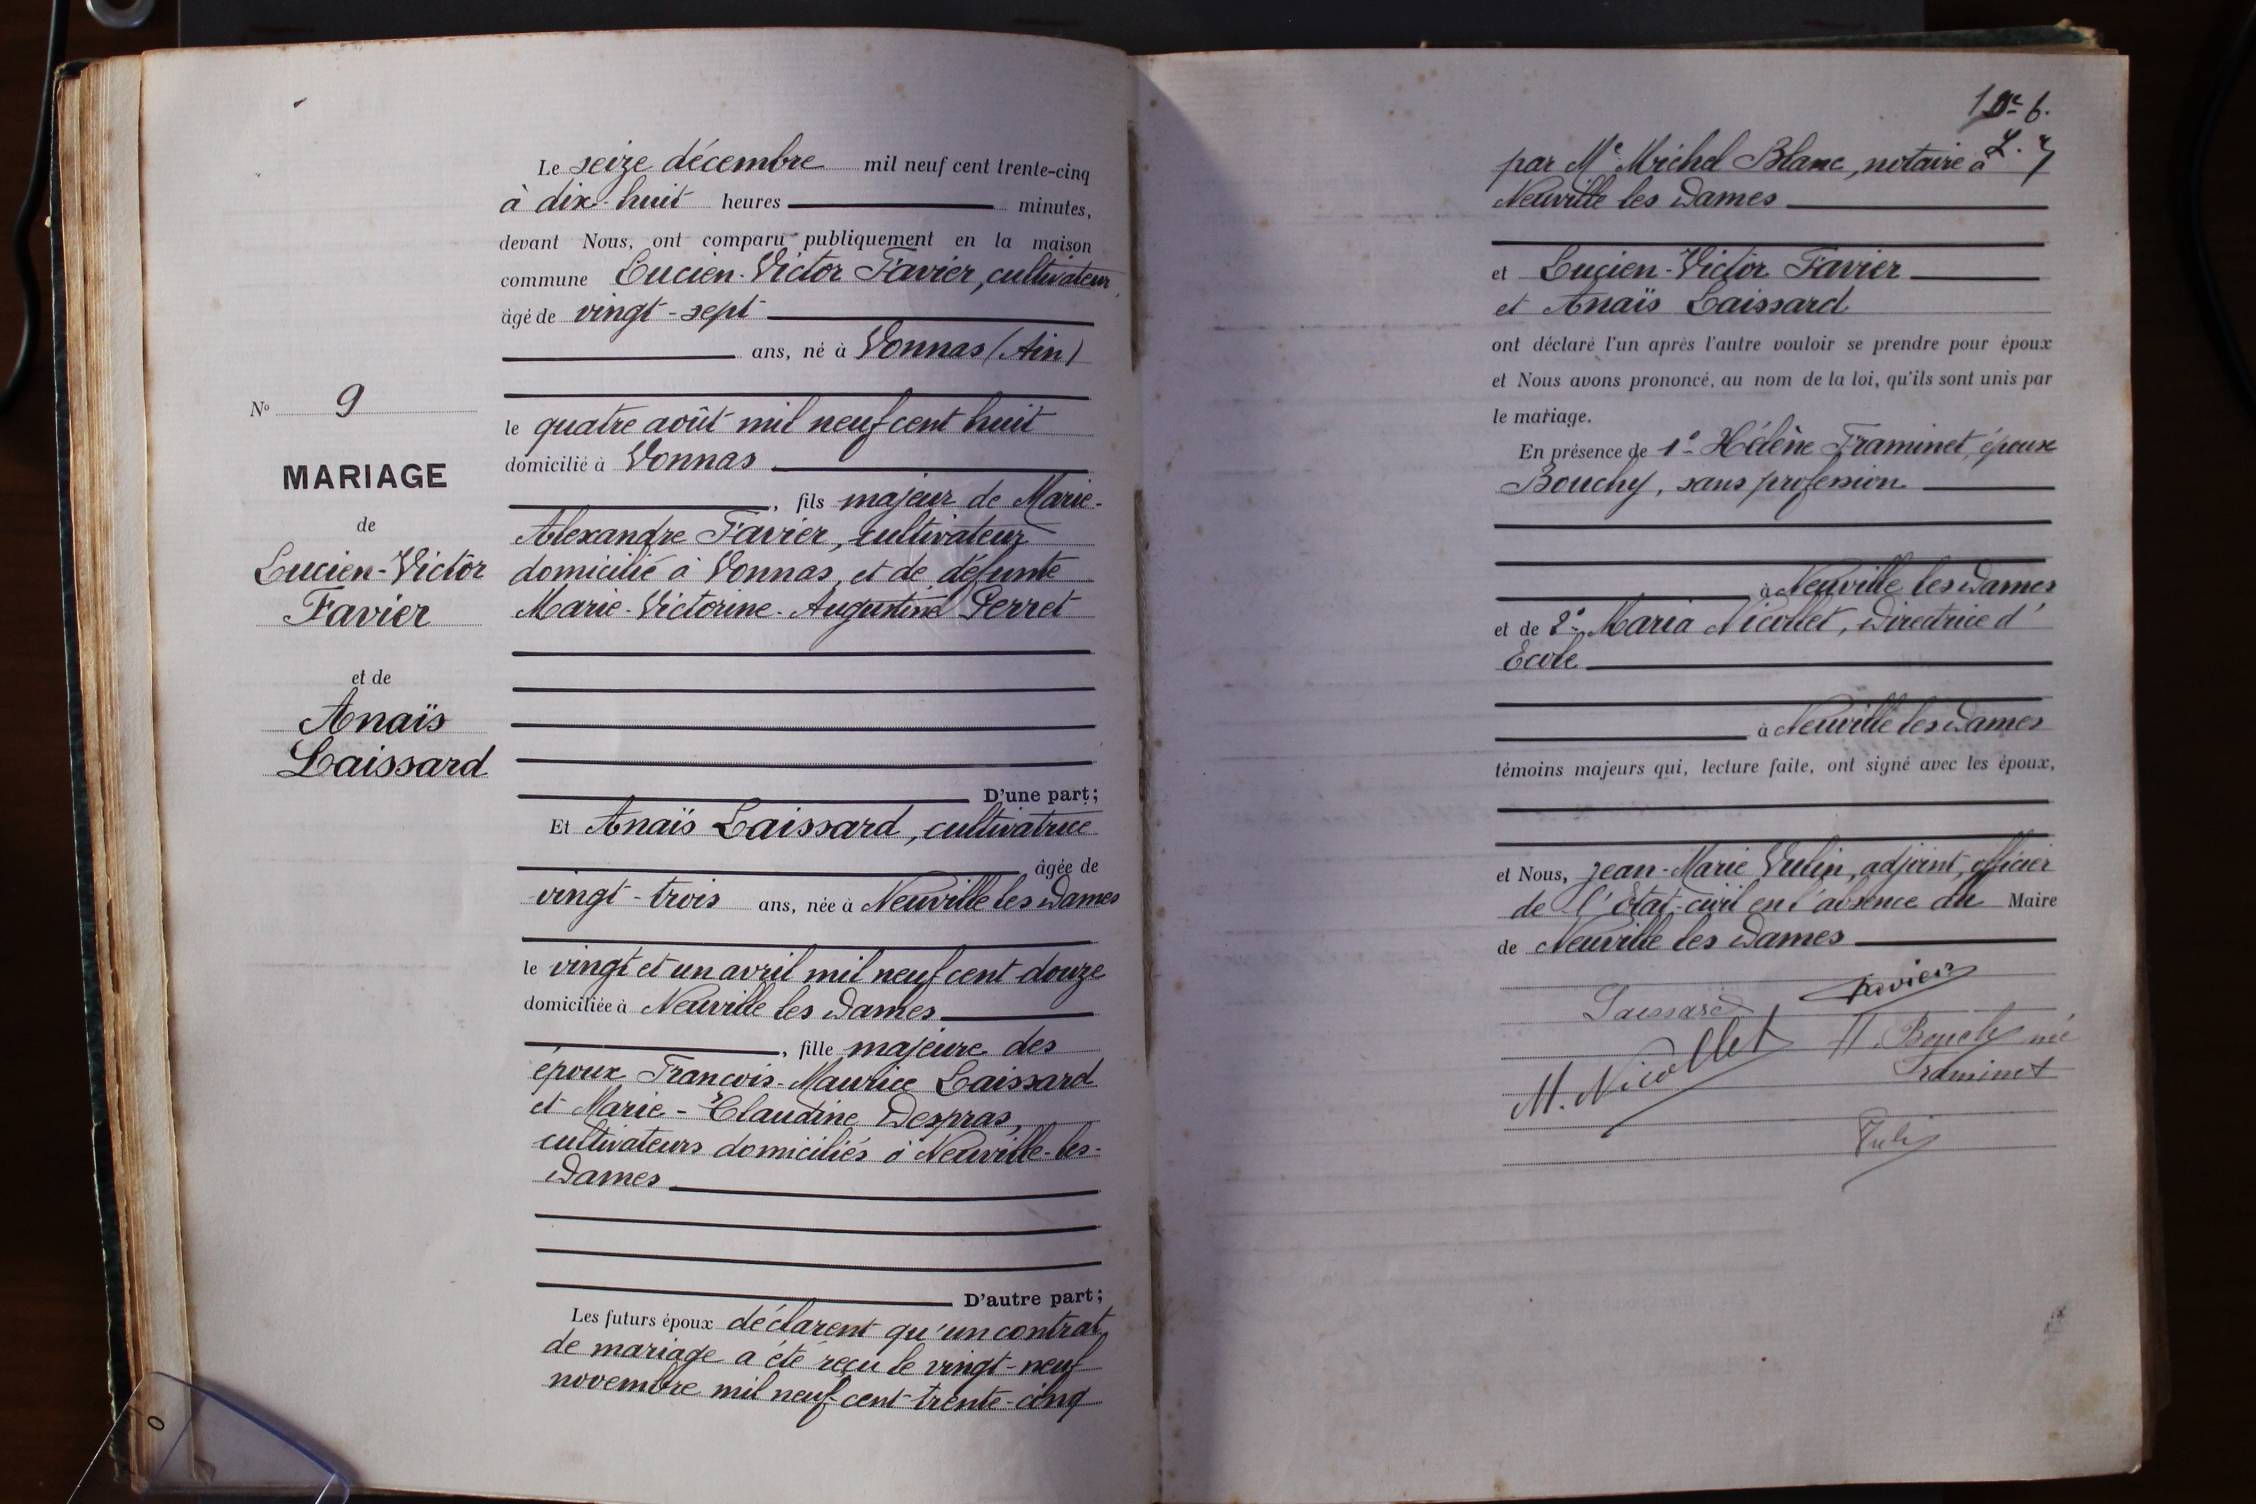 Le seize décembre mil neuf cent trente-cinq
à dix-huit heures minutes,
devant Nous, ont comparu publiquement en la maison
commune Lucien-Victor Favier, cultivateur
âgé de vingt-sept
ans, né à Vonnas (Ain)
le quatre août mil neuf cent huit
domicilié à Vonnas
, fils majeur de Marie-
Alexandre Favier, cultivateur
domicilié à Vonnas, et de défunte
Marie-Victorine-Augustine Perret
D'une part;
Et Anaïs Laissard, cultivatrice
âgée de
vingt-trois ans, née à Neuville les Dames
le vingt et un avril mil neuf cent douze
domiciliée à Neuville les Dames
, fille majeure des
époux François-Maurice Laissard
et Marie-Claudine Despras,
cultivateurs domiciliés à Neuville-les-
Dames
D'autre part;
Les futurs époux déclarent qu'un contrat
de mariage a été reçu le vingt-neuf
novembre mil neuf cent trente-cinq
No 9
MARIAGE
de
Lucien-Victor
Favier
et de
Anaïs
Laissard
par Me Michel Blanc, notaire à
Neuville les Dames
et Lucien-Victor Favier
et Anaïs Laissard
ont déclaré l'un après l'autre vouloir se prendre pour époux
et Nous avons prononcé, au nom de la loi, qu'ils sont unis par
le mariage.
En présence de 1° Hélène Framinet, épouse
Bouchy, sans profession
à Neuville les Dames
et de 2° Maria Nicollet, Directrice d'
Ecole
à Neuville les Dames
témoins majeurs qui, lecture faite, ont signé avec les époux,
et Nous, Jean-Marie Vulin, adjoint, officier
de l'Etat-civil en l'absence du Maire
de Neuville les Dames
Laissard Favier
M. Nicollet H. Bouchy née
Framinet
Vulin